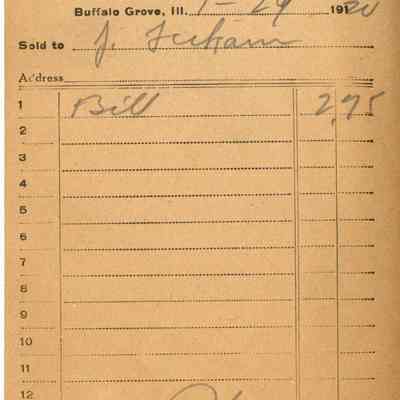 Buffalo Grove, Ill. 1-29 19120
Sold to J.
Address
1 Bill 2.75
2
3
4
5
6
7
8
9
10
11
12